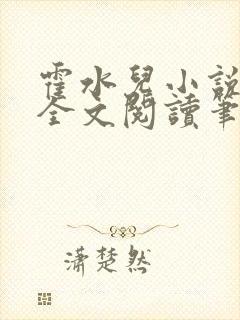 霍水兒小說
全文閱讀筆
瀟楚然